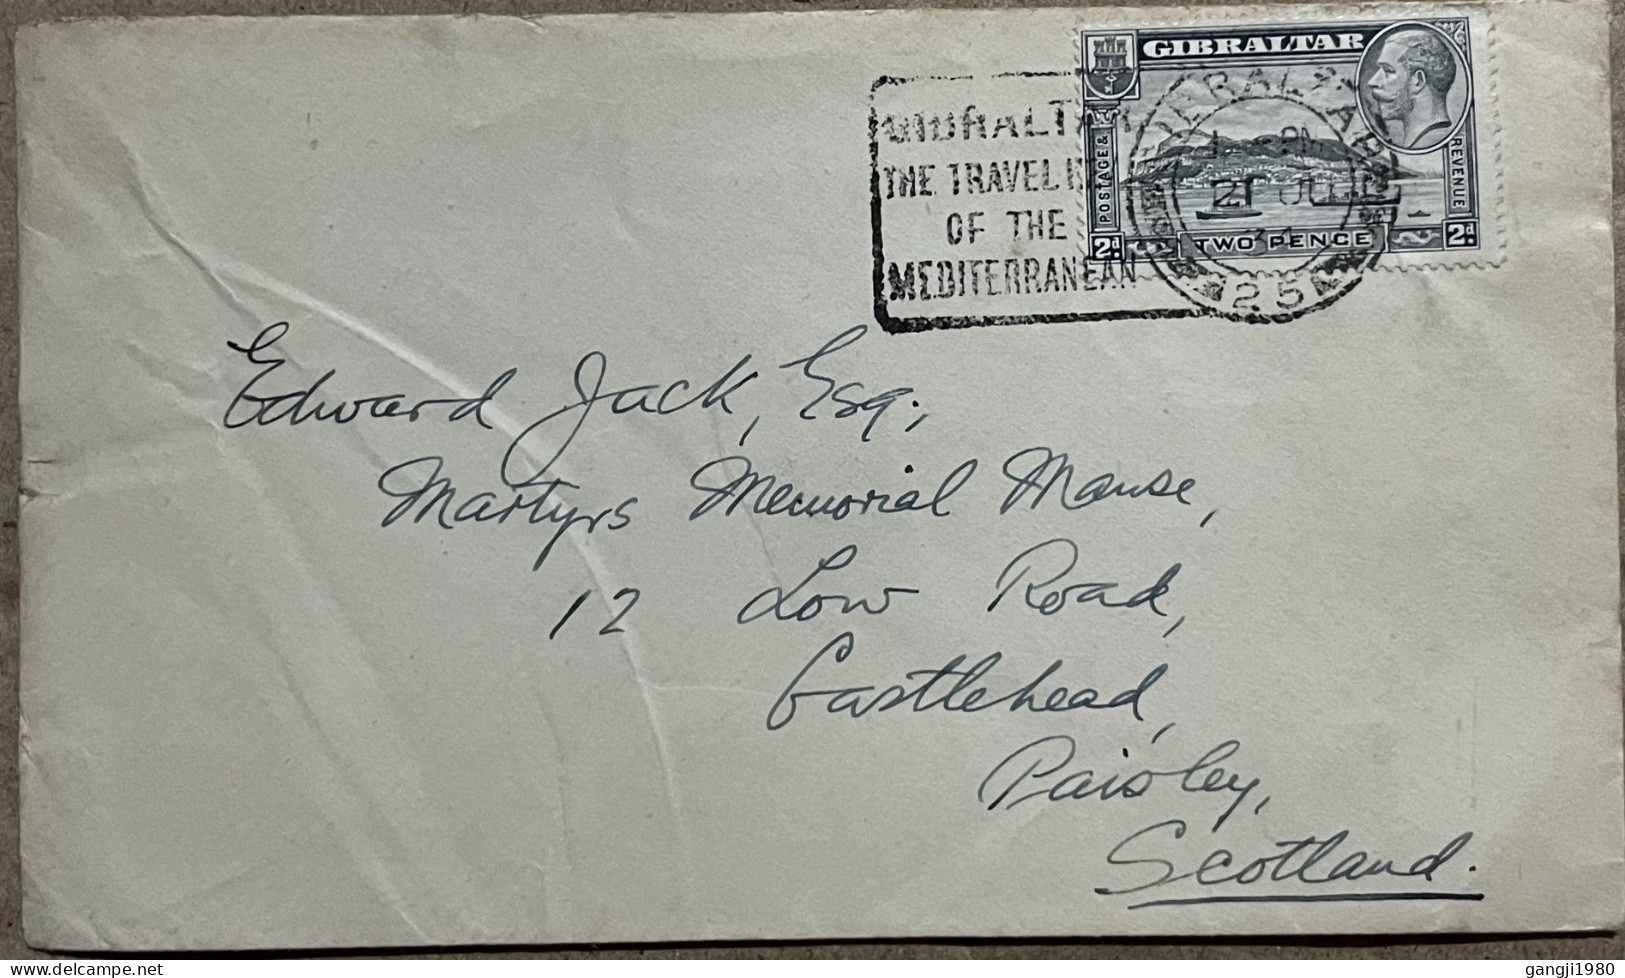 GIBRALTAR
POSTAGE &
REVENUE
2d
TWO PENCE
2d
GIBRALTAR
THE TRAVEL
OF THE
MEDITERRANEAN
GIBRALTAR
PM
21 JUL
34
25
Edward Jack, Esq.,
Martyrs Memorial Manse,
12 Low Road,
Castlehead,
Paisley,
Scotland.
gangji1980